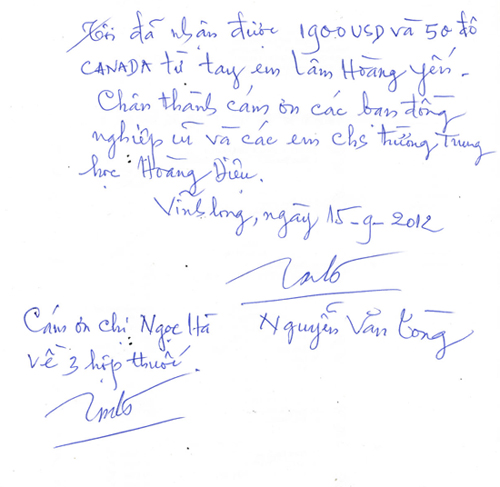 Tôi đã nhận được 1900USD và 50 đô
CANADA từ tay em Lâm Hoàng Yến.
Chân thành cám ơn các bạn đồng
nghiệp cũ và các em chs trường Trung
học Hoàng Diệu.
Vĩnh long, ngày 15-9-2012
Nguyễn Văn Còng
Cám ơn chị Ngọc Hà
về 3 hộp thuốc.